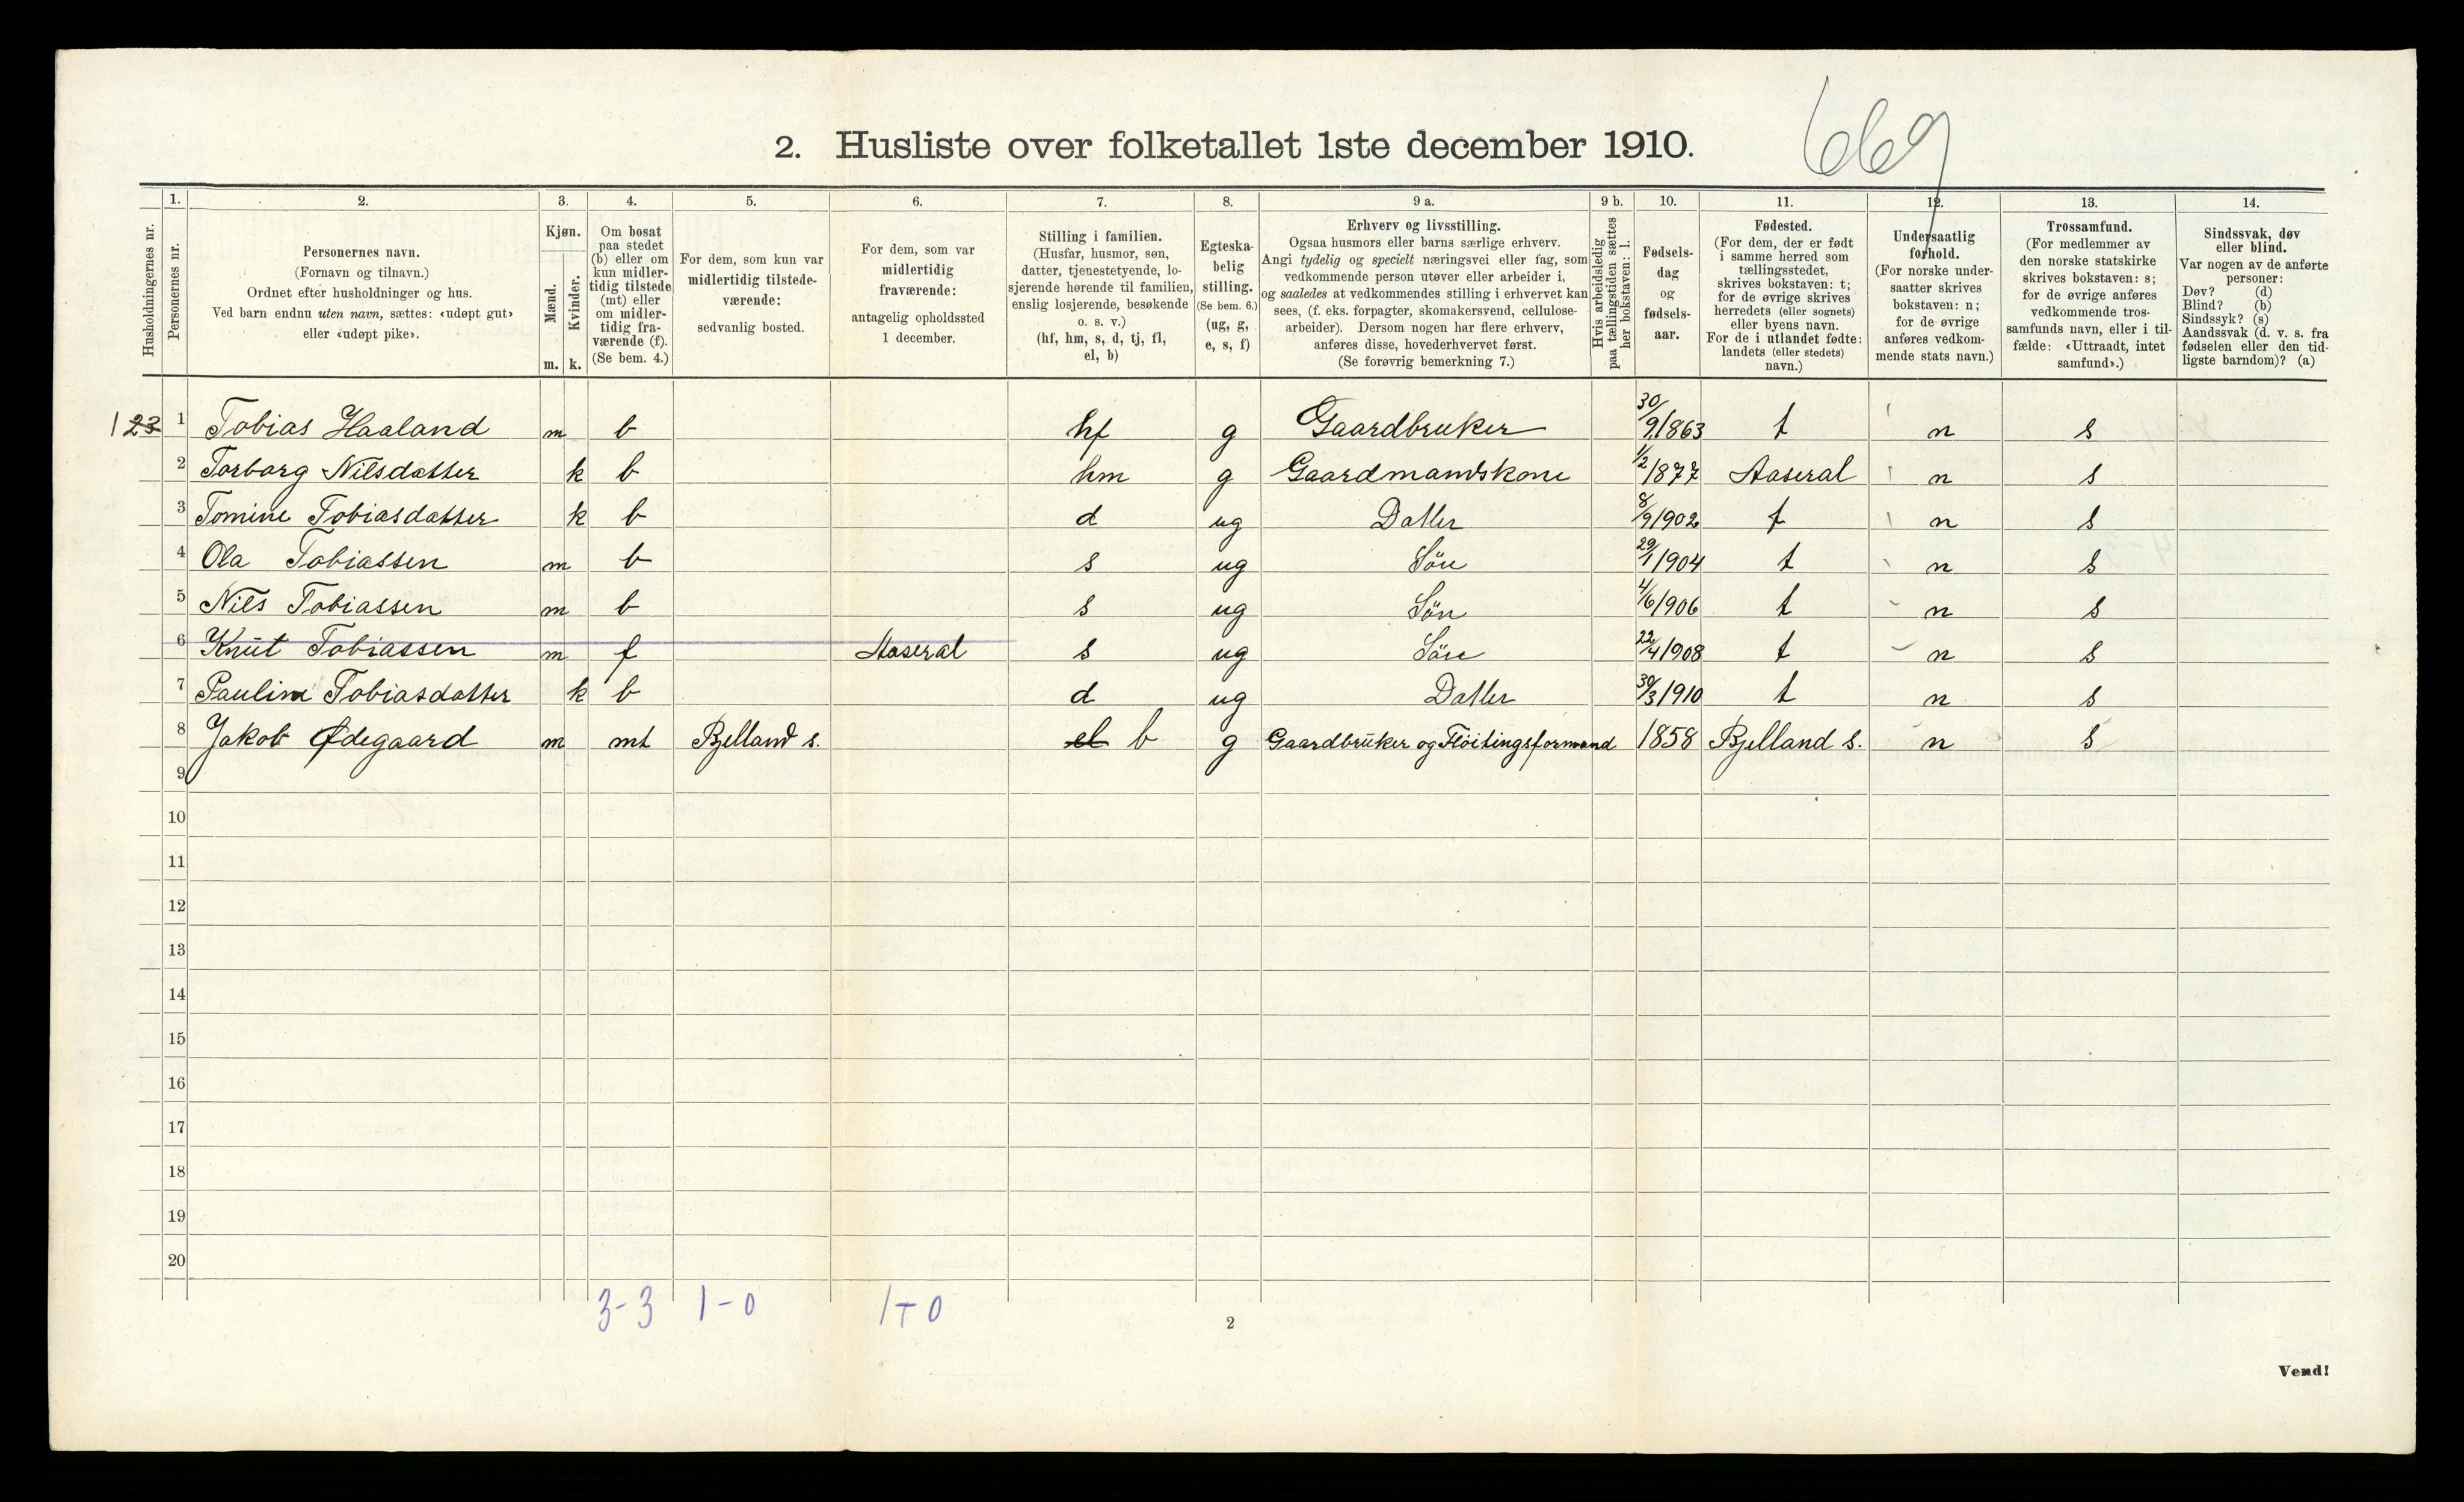 669
2. Husliste over folketallet 1ste december 1910.
Husholdningernes nr.
1. Personernes nr.
2. Personernes navn. (Fornavn og tilnavn.) Ordnet efter husholdninger og hus. Ved barn endnu uten navn, sættes: «udøpt gut» eller «udøpt pike».
3. Kjøn. Mænd. m. Kvinder. k.
4. Om bosat paa stedet (b) eller om kun midlertidig tilstede (mt) eller om midlertidig fraværende (f). (Se bem. 4.)
5. For dem, som kun var midlertidig tilstedeværende: sedvanlig bosted.
6. For dem, som var midlertidig fraværende: antagelig opholdssted 1 december.
7. Stilling i familien. (Husfar, husmor, søn, datter, tjenestetyende, losjerende hørende til familien, enslig losjerende, besøkende o. s. v.) (hf, hm, s, d, tj, fl, el, b)
8. Egteskabelig stilling. (Se bem. 6.) (ug, g, e, s, f)
9 a. Erhverv og livsstilling. Ogsaa husmors eller barns særlige erhverv. Angi tydelig og specielt næringsvei eller fag, som vedkommende person utøver eller arbeider i, og saaledes at vedkommendes stilling i erhvervet kan sees, (f. eks. forpagter, skomakersvend, cellulosearbeider). Dersom nogen har flere erhverv, anføres disse, hovederhvervet først. (Se forøvrig bemerkning 7.)
9 b. Hvis arbeidsledig paa tællingstiden sættes her bokstaven: l.
10. Fødselsdag og fødselsaar.
11. Fødested. (For dem, der er født i samme herred som tællingsstedet, skrives bokstaven: t; for de øvrige skrives herredets (eller sognets) eller byens navn. For de i utlandet fødte: landets (eller stedets) navn.)
12. Undersaatlig forhold. (For norske undersaatter skrives bokstaven: n; for de øvrige anføres vedkommende stats navn.)
13. Trossamfund. (For medlemmer av den norske statskirke skrives bokstaven: s; for de øvrige anføres vedkommende trossamfunds navn, eller i tilfælde: «Uttraadt, intet samfund».)
14. Sindssvak, døv eller blind. Var nogen av de anførte personer: Døv? (d) Blind? (b) Sindssyk? (s) Aandssvak (d. v. s. fra fødselen eller den tidligste barndom)? (a)
123 1 Tobias Haaland m b hf g Gaardbruker 30/9 1863 t n s
2 Torborg Nilsdatter k b hm g Gaardmandskone 1/2 1877 Aaseral n s
3 Tomine Tobiasdatter k b d ug Datter 8/9 1902 t n s
4 Ola Tobiassen m b s ug Sön 29/1 1904 t n s
5 Nils Tobiassen m b s ug Sön 4/6 1906 t n s
6 Knut Tobiassen m f Aaseral s ug Sön 22/4 1908 t n s
7 Pauline Tobiasdatter k b d ug Datter 30/3 1910 t n s
8 Jakob Ødegaard m mt Bjelland s. el b g Gaardbruker og Flöitingsformand 1858 Bjelland s. n s
9
10
11
12
13
14
15
16
17
18
19
20
3-3 1-0 1-0
2
Vend!